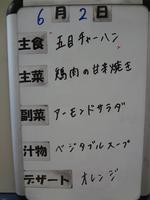 6月2日
主食 五目チャーハン
主菜 鶏肉の甘茶焼き
副菜 アーモンドサラダ
汁物 ベジタブルスープ
デザート オレンジ